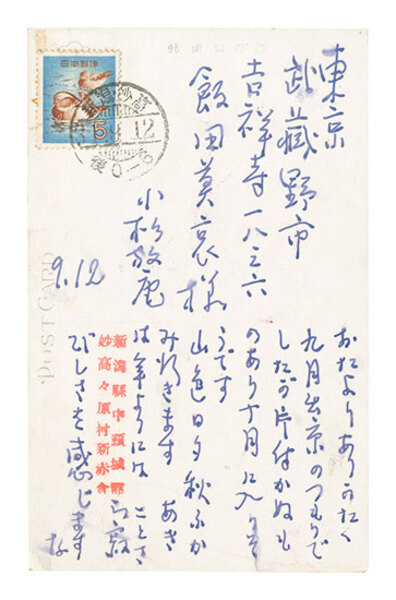 東京
武蔵野市
吉祥寺一八三六
飯田莫哀様
小杉放庵
9.12
おたよりありかたく
九月出京のつもりで
したか片付かぬも
のあり十月に入りそ
うです
山色日夕秋ふか
み行きます あき
は年よりには ことさ
ら寂
びしさを感じます
な
新潟縣中頸城郡
妙高々原村新赤倉
日本郵便
5
12
POST CARD